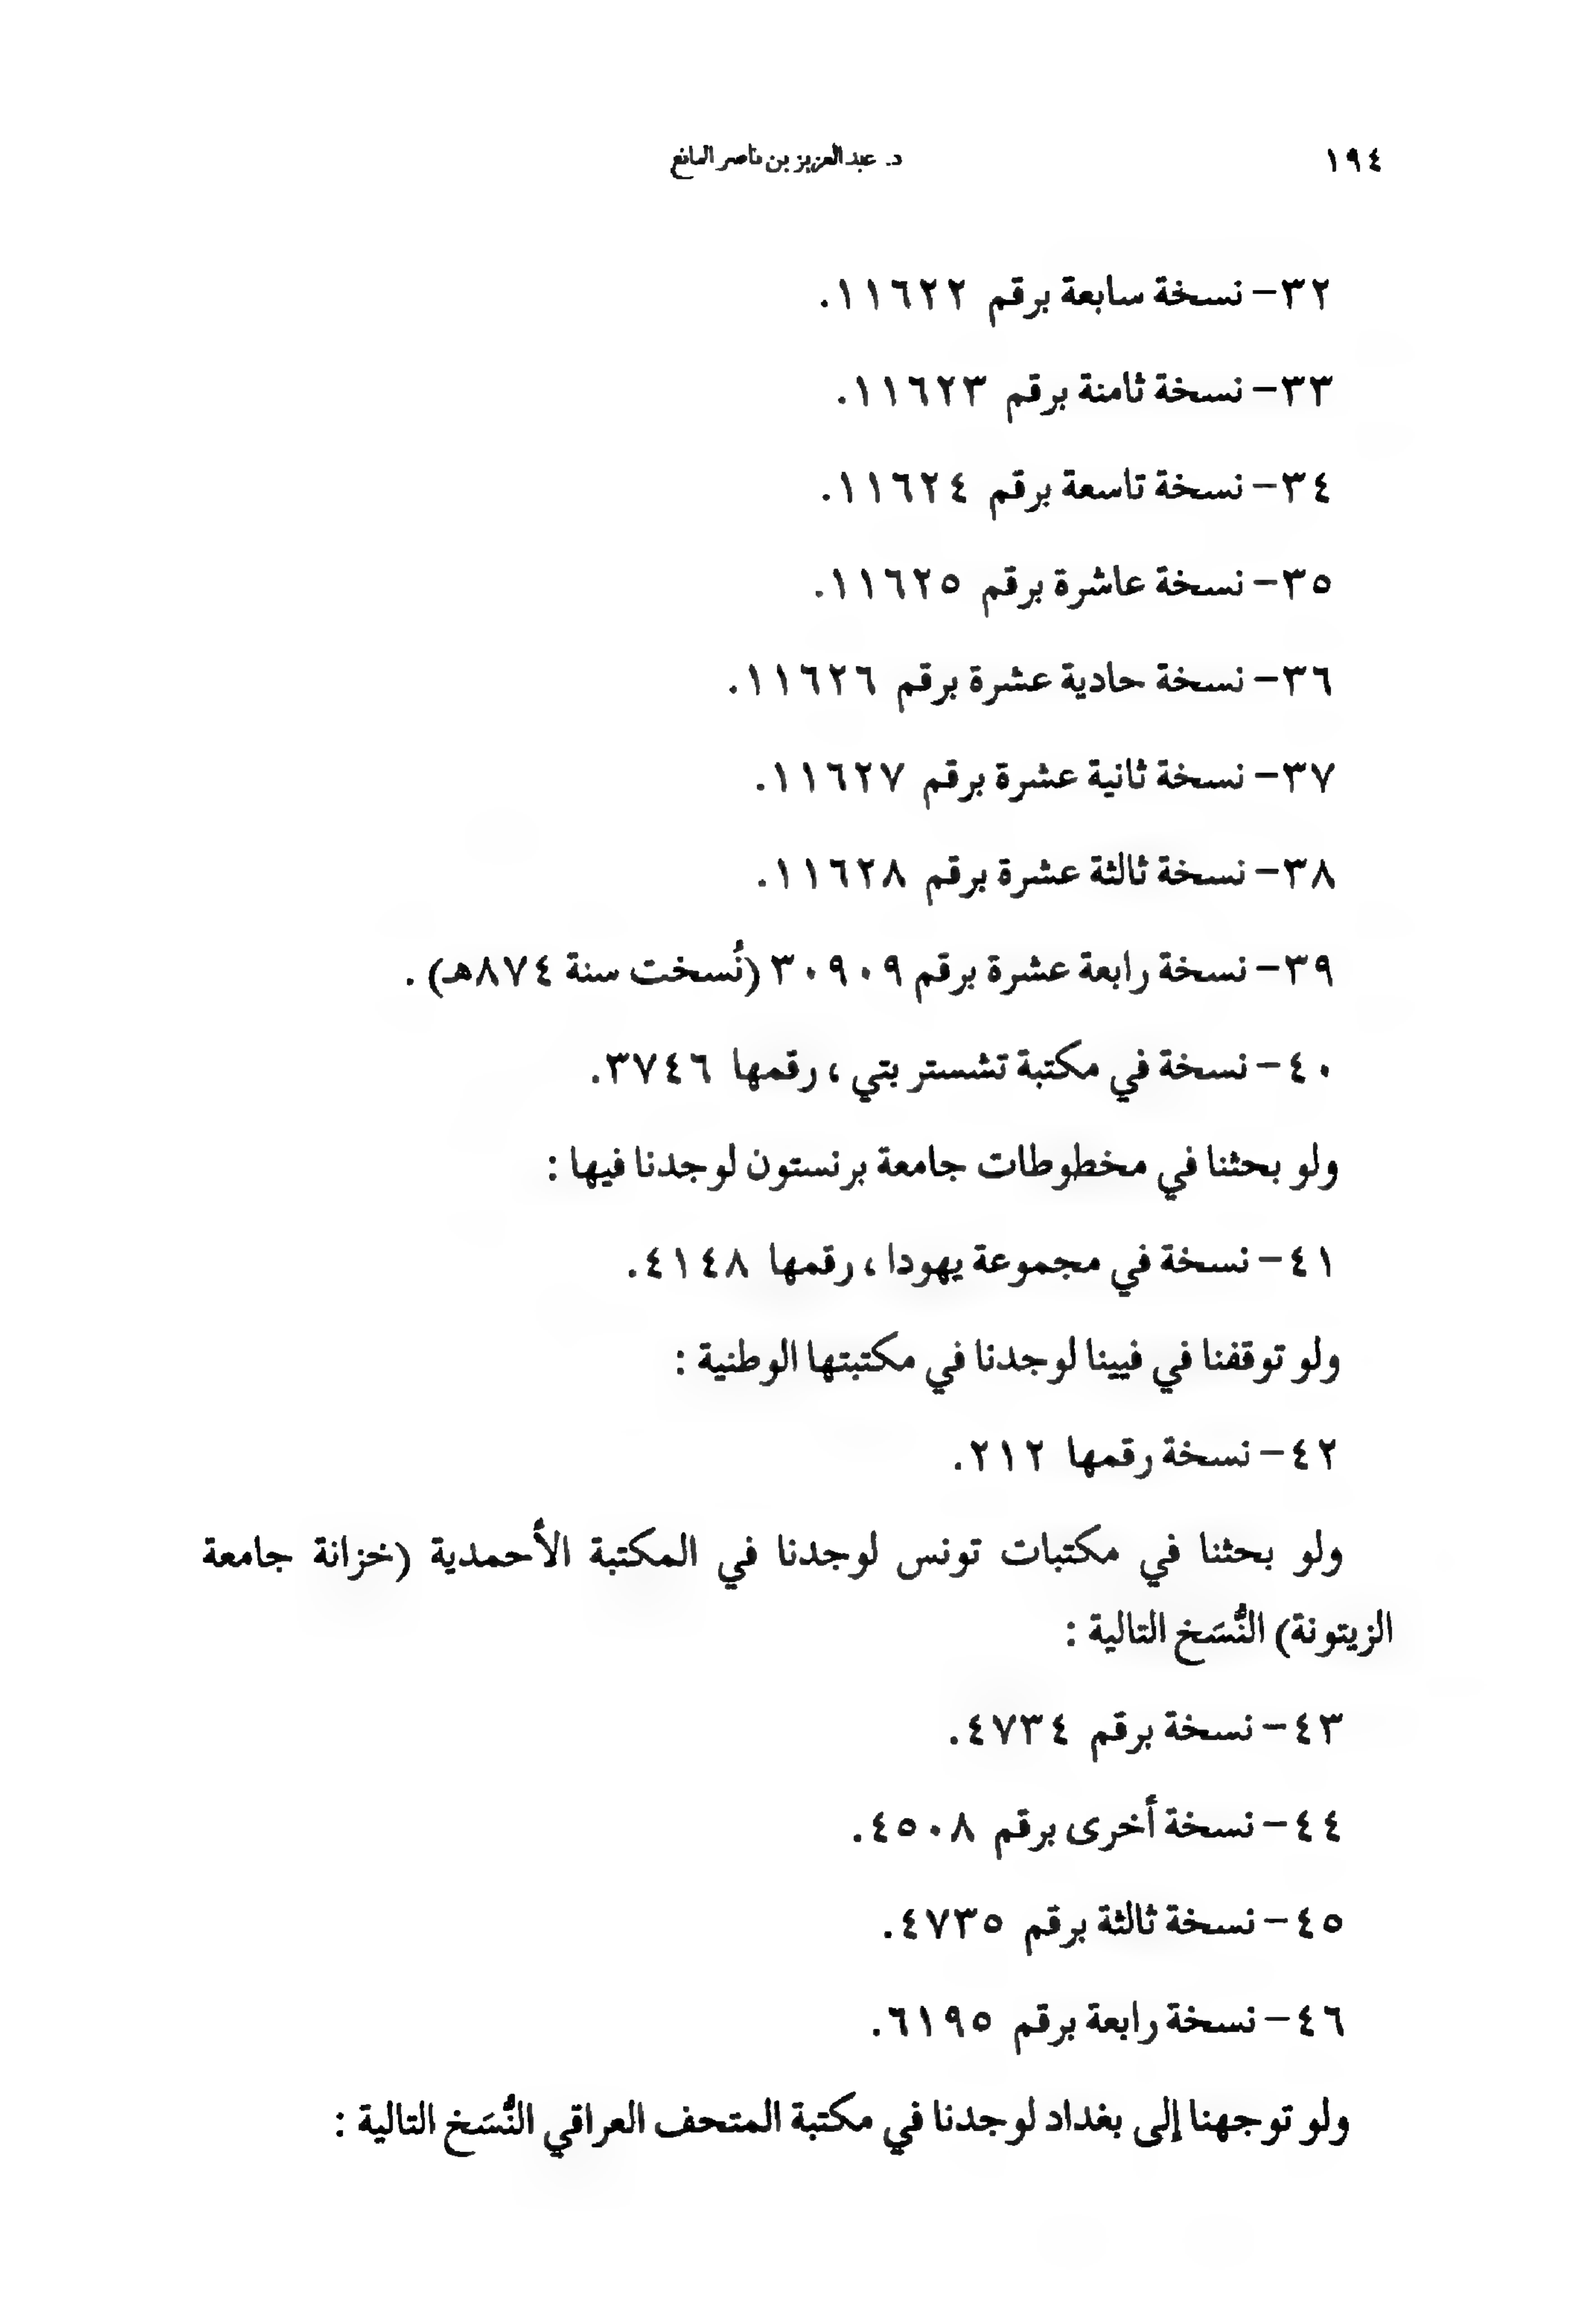 ١٩٤
د. عبدالعزيز بن ناصر المانع
٣٢- نسخة سابعة برقم ١١٦٢٢.
٣٣- نسخة ثامنة برقم ١١٦٢٣.
٣٤- نسخة تاسعة برقم ١١٦٢٤.
٣٥- نسخة عاشرة برقم ١١٦٢٥.
٣٦- نسخة حادية عشرة برقم ١١٦٢٦.
٣٧- نسخة ثانية عشرة برقم ١١٦٢٧.
٣٨- نسخة ثالثة عشرة برقم ١١٦٢٨.
٣٩- نسخة رابعة عشرة برقم ٣٠٩٠٩ (نُسخت سنة ٨٧٤هـ) .
٤٠- نسخة في مكتبة تشستر بتي ، رقمها ٣٧٤٦.
ولو بحثنا في مخطوطات جامعة برنستون لوجدنا فيها :
٤١- نسخة في مجموعة يهودا ، رقمها ٤١٤٨.
ولو توقفنا في فيينا لوجدنا في مكتبتها الوطنية :
٤٢- نسخة رقمها ٢١٢.
ولو بحثنا في مكتبات تونس لوجدنا في المكتبة الأحمدية (خزانة جامعة
الزيتونة) النُّسَخ التالية :
٤٣- نسخة برقم ٤٧٣٤.
٤٤- نسخة أخرى برقم ٤٥٠٨.
٤٥- نسخة ثالثة برقم ٤٧٣٥.
٤٦- نسخة رابعة برقم ٦١٩٥.
ولو توجهنا إلى بغداد لوجدنا في مكتبة المتحف العراقي النُّسَخ التالية :